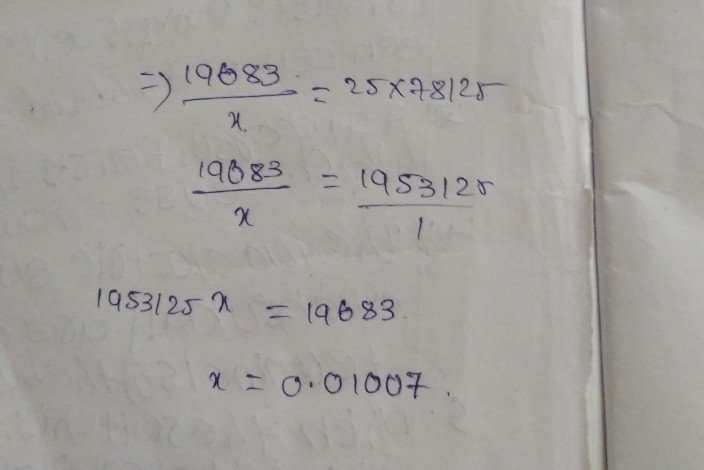 ⇒ 19683/x = 25×78125
19683/x = 1953125/1
1953125 x = 19683
x = 0.01007.